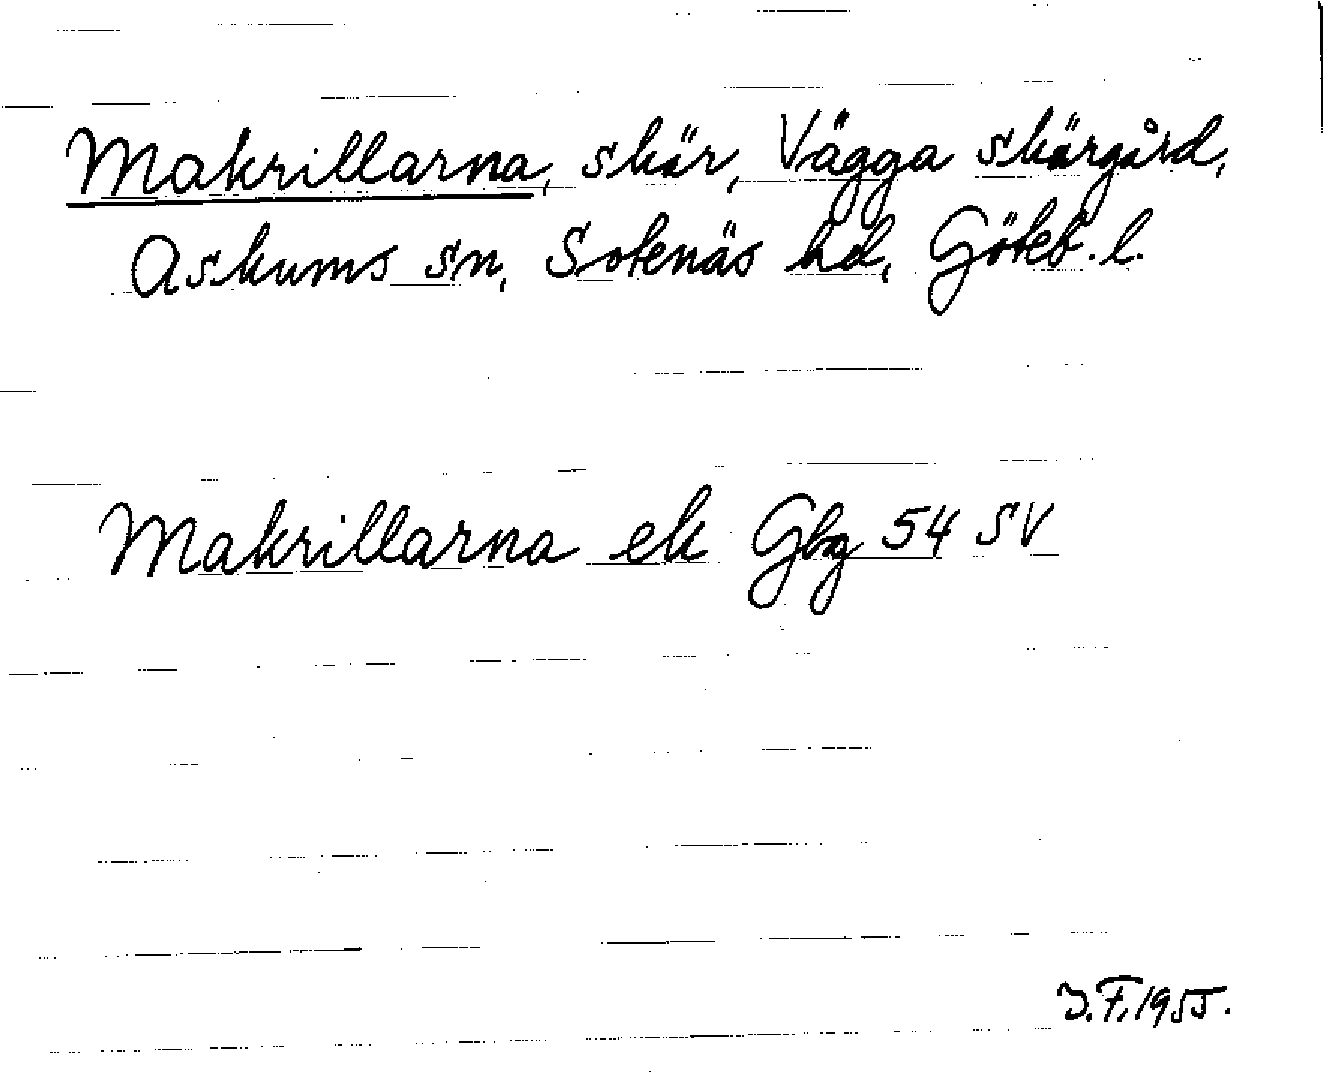 Makrillarna, skär, Vägga skärgård,
Askums sn, Sotenäs hd, Göteb. l.
Makrillarna ek Gbg 54 SV
J.F. 1955.